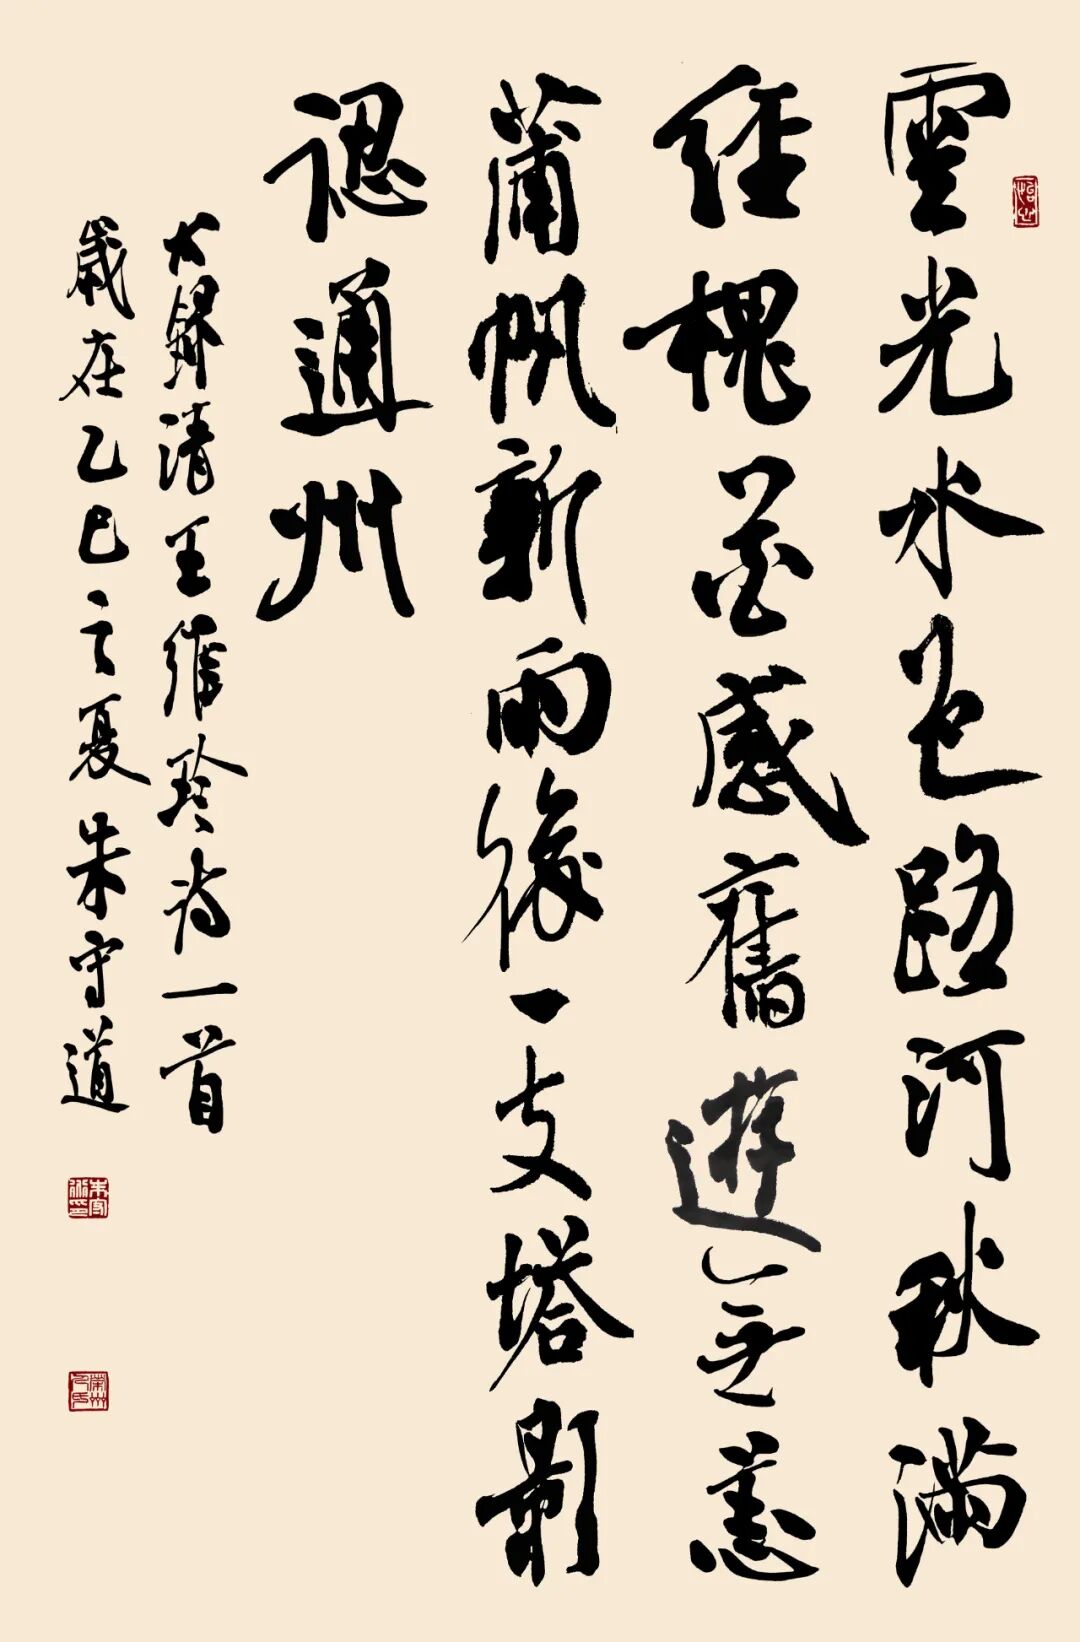 雲光水色路河秋滿
徑槐花感舊遊無恙
蒲帆新雨後一支塔影
認通州
右録清王維珍詩一首
歲在乙巳之夏朱守道